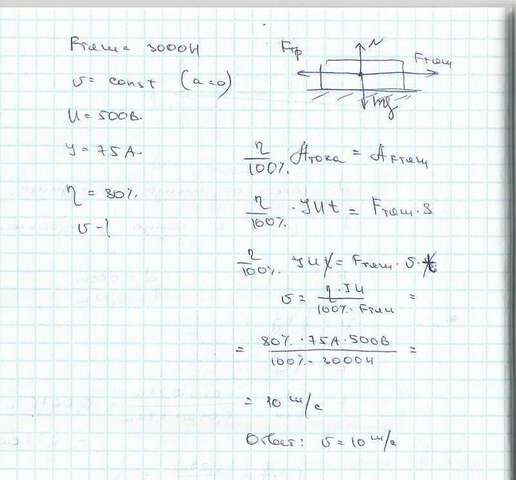 Fтяги = 3000Н
υ = const (a=0)
U = 500В.
J = 75А.
η = 80%.
υ - ?
Fтр N Fтяги
mg
η/100% Aтока = AFтяги
η/100% · JUt = Fтяги · S
η/100% · JUt = Fтяги · υ · t
υ = η · JU / 100% · Fтяги =
= 80% · 75А · 500В / 100% · 3000Н =
= 10 м/с
Ответ: υ = 10 м/с